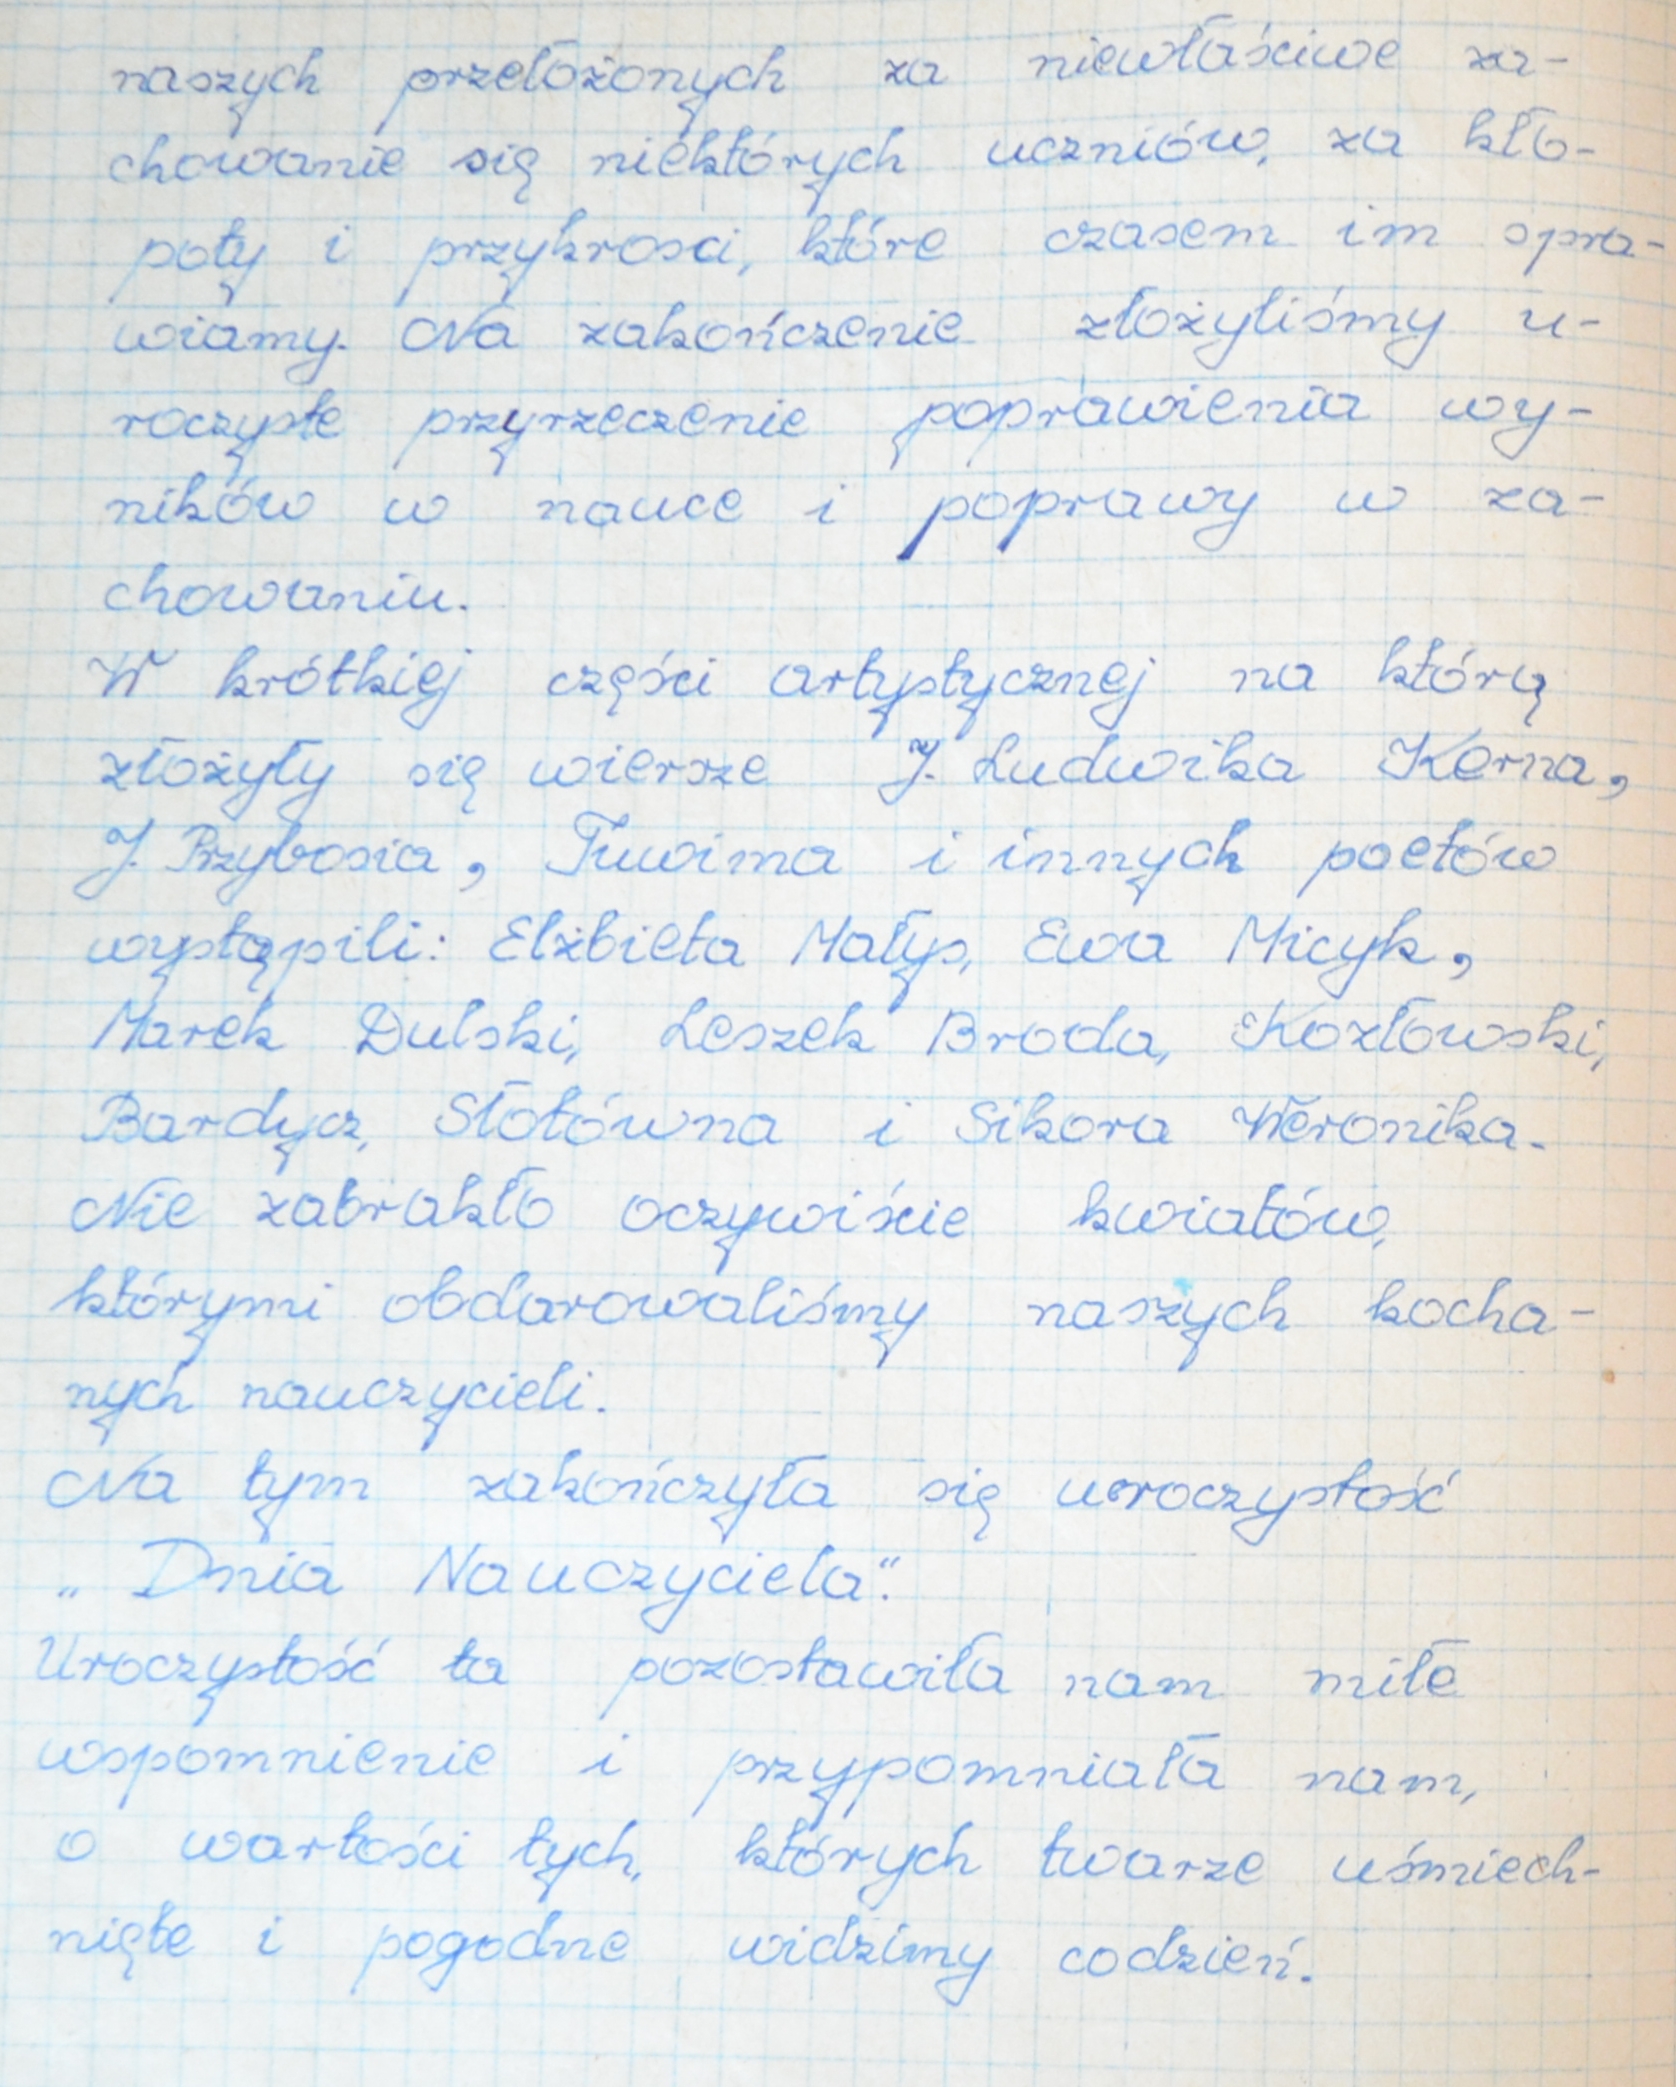 naszych przełożonych za niewłaściwe za-
chowanie się niektórych uczniów, za kło-
poty i przykrosci, które czasem im spra-
wiamy. Na zakończenie złożyliśmy u-
roczyste przyrzeczenie poprawienia wy-
ników w nauce i poprawy w za-
chowaniu.
W krótkiej części artystycznej na którą
złożyły się wiersze J. Ludwika Kerna,
J. Przybosia, Tuwima i innych poetów
wystąpili: Elżbieta Małys, Ewa Micyk,
Marek Dulski, Leszek Broda, Kozłowski,
Bardycz, Słotówna i Sikora Weronika.
Nie zabrakło oczywiście kwiatów,
którymi obdarowaliśmy naszych kocha-
nych nauczycieli.
Na tym zakończyła się uroczystość
„Dnia Nauczyciela".
Uroczystość ta pozostawiła nam miłe
wspomnienie i przypomniała nam,
o wartości tych, których twarze uśmiech-
nięte i pogodne widzimy codzień.